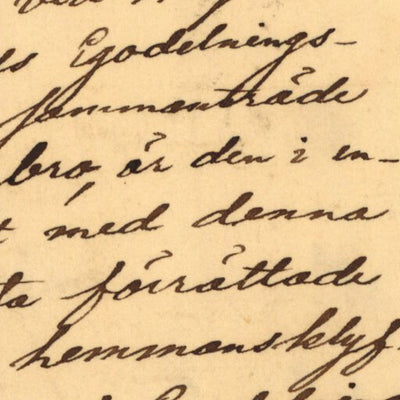 es Egodelnings-
sammanträde
bro, är den i en-
t med denna
ta förrättade
hemmansklyf